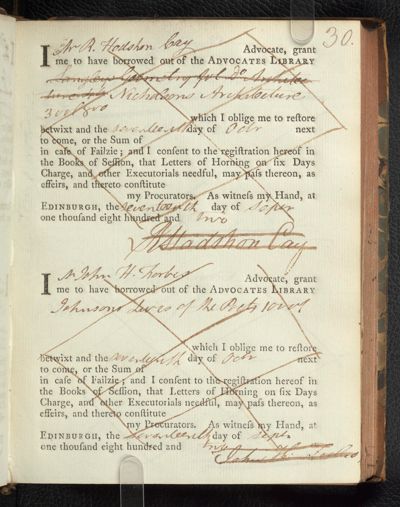 30.
I Mr R. Hodshon Cay Advocate, grant
me to have borrowed out of the ADVOCATES LIBRARY
Geometry
Nicholsons Architecture
3 vol 8vo
which I oblige me to reſtore
betwixt and the seventeenth day of Octr next
to come, or the Sum of
in caſe of Failzie; and I conſent to the regiſtration hereof in
the Books of Seſſion, that Letters of Horning on ſix Days
Charge, and other Executorials needful, may paſs thereon, as
effeirs, and thereto conſtitute
my Procurators. As witneſs my Hand, at
EDINBURGH, the seventeenth day of Septr
one thouſand eight hundred and two
R Hodshon Cay
I Mr John H. Forbes Advocate, grant
me to have borrowed out of the ADVOCATES LIBRARY
Johnsons lives of the Poets 10 vol
which I oblige me to reſtore
betwixt and the seventeenth day of Octr next
to come, or the Sum of
in caſe of Failzie; and I conſent to the regiſtration hereof in
the Books of Seſſion, that Letters of Horning on ſix Days
Charge, and other Executorials needful, may paſs thereon, as
effeirs, and thereto conſtitute
my Procurators. As witneſs my Hand, at
EDINBURGH, the seventeenth day of Septr
one thouſand eight hundred and two
John H. Forbes